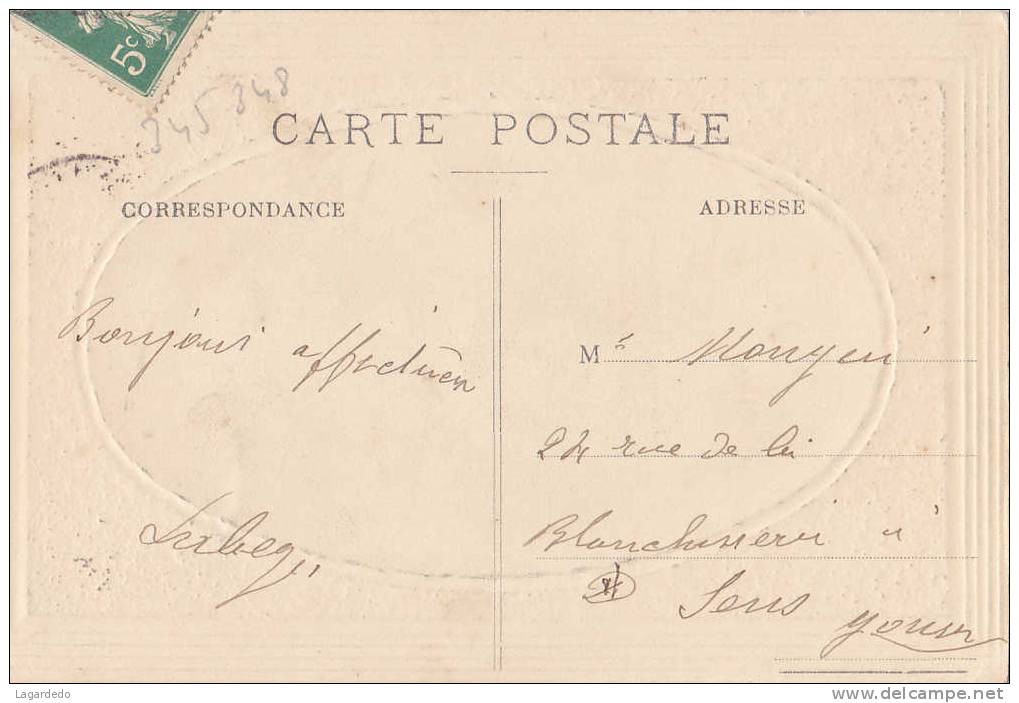 5c
345 348
CARTE POSTALE
CORRESPONDANCE
ADRESSE
Bonjour affectueux
Mr
24 rue de la
Blanchisserie à
Sens Yonne
Lagardedo
www.delcampe.net